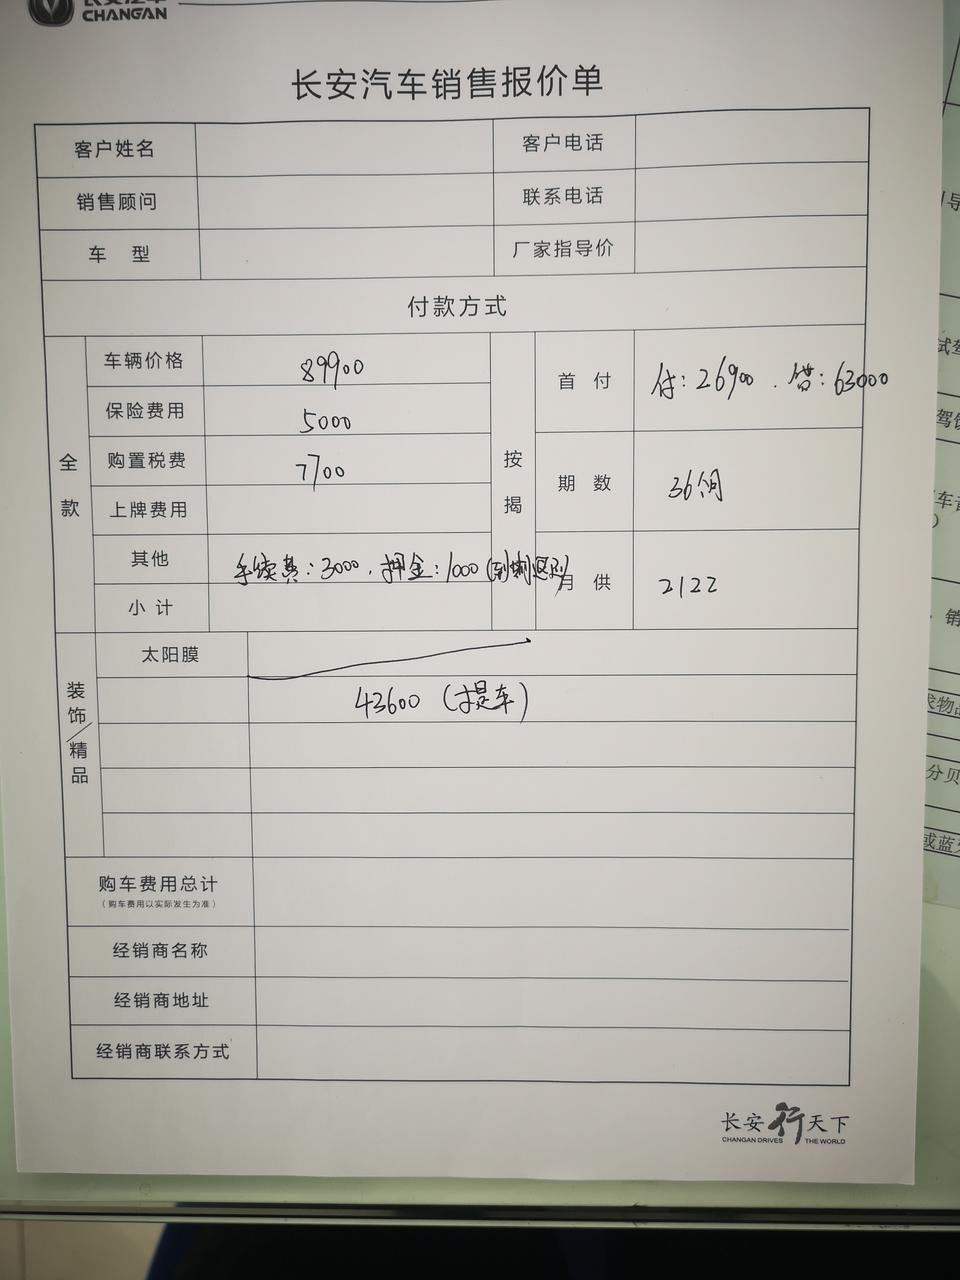 长安汽车
CHANGAN
长安汽车销售报价单
客户姓名 客户电话
销售顾问 联系电话
车 型 厂家指导价
付款方式
全款
车辆价格 89900
保险费用 5000
购置税费 7700
上牌费用
其他 手续费:3000.押金:1000(到期退还)
小计
按揭
首 付 付:26900.借:63000
期 数 36个月
月 供 2122
装饰/精品
太阳膜
43600(提车)
购车费用总计
(购车费用以实际发生为准)
经销商名称
经销商地址
经销商联系方式
长安行天下
CHANGAN DRIVES THE WORLD